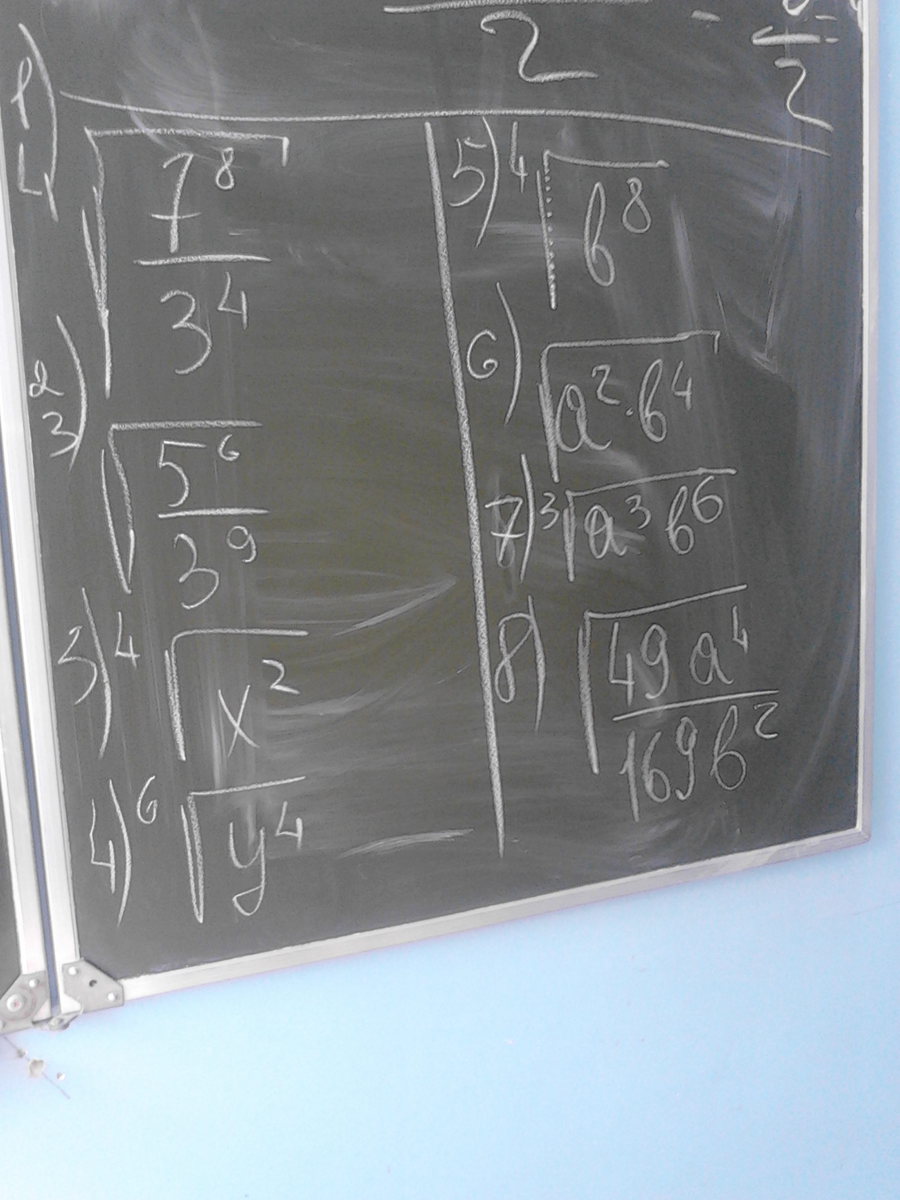 2 - 2
1) ⁴√(7⁸/3⁴)
2) ³√(5⁶/3⁹)
3) ⁴√x²
4) ⁶√y⁴
5) ⁴√b⁸
6) √a²·b⁴
7) ³√a³b⁶
8) √(49a⁴/169b²)